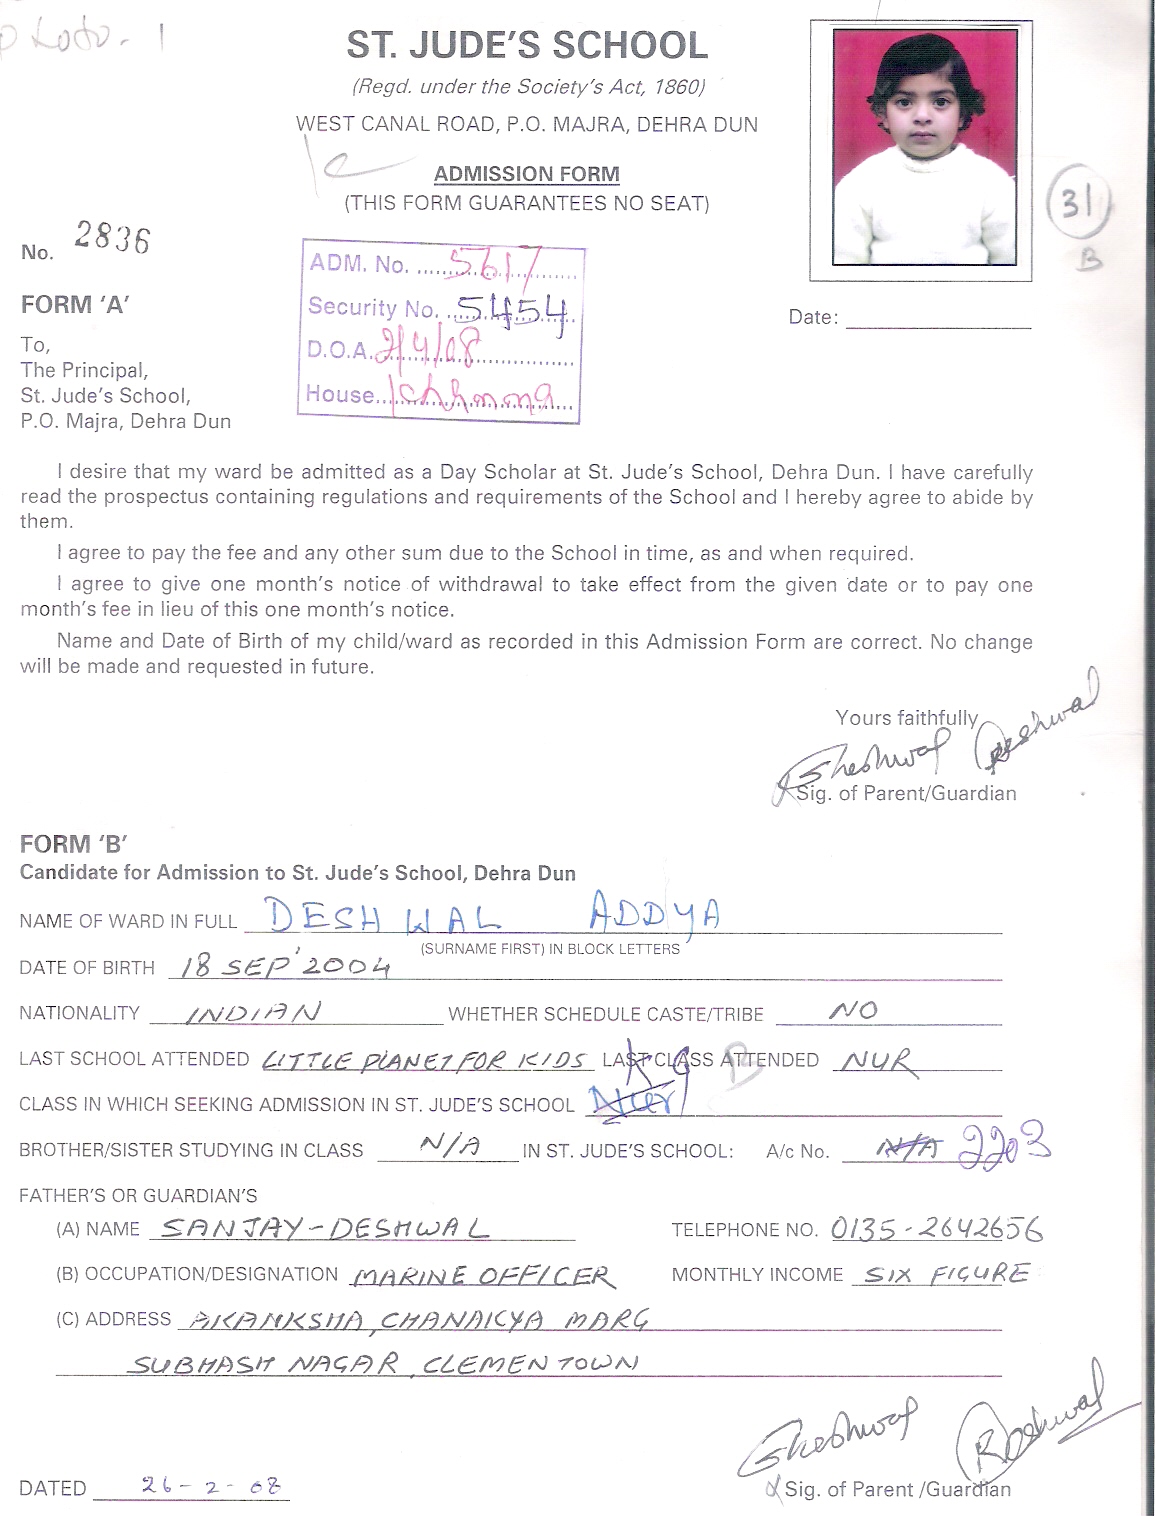 ST. JUDE'S SCHOOL
(Regd. under the Society's Act, 1860)
WEST CANAL ROAD, P.O. MAJRA, DEHRA DUN
ADMISSION FORM
(THIS FORM GUARANTEES NO SEAT)
31
B
No. 2836
ADM. No. 5617
Security No. 5454
D.O.A. 2/4/08
House
FORM 'A'
Date:
To,
The Principal,
St. Jude's School,
P.O. Majra, Dehra Dun
I desire that my ward be admitted as a Day Scholar at St. Jude's School, Dehra Dun. I have carefully
read the prospectus containing regulations and requirements of the School and I hereby agree to abide by
them.
I agree to pay the fee and any other sum due to the School in time, as and when required.
I agree to give one month's notice of withdrawal to take effect from the given date or to pay one
month's fee in lieu of this one month's notice.
Name and Date of Birth of my child/ward as recorded in this Admission Form are correct. No change
will be made and requested in future.
Yours faithfully
Deshwal
Sig. of Parent/Guardian
FORM 'B'
Candidate for Admission to St. Jude's School, Dehra Dun
NAME OF WARD IN FULL DESHWAL ADDYA
(SURNAME FIRST) IN BLOCK LETTERS
DATE OF BIRTH 18 SEP'2004
NATIONALITY INDIAN WHETHER SCHEDULE CASTE/TRIBE NO
LAST SCHOOL ATTENDED LITTLE PLANET FOR KIDS LAST CLASS ATTENDED NUR
CLASS IN WHICH SEEKING ADMISSION IN ST. JUDE'S SCHOOL KG B
BROTHER/SISTER STUDYING IN CLASS N/A IN ST. JUDE'S SCHOOL: A/c No. N/A 2203
FATHER'S OR GUARDIAN'S
(A) NAME SANJAY-DESHWAL TELEPHONE NO. 0135-2642656
(B) OCCUPATION/DESIGNATION MARINE OFFICER MONTHLY INCOME SIX FIGURE
(C) ADDRESS AKANKSHA, CHANAKYA MARG
SUBHASH NAGAR, CLEMENTOWN
Deshwal
DATED 26-2-08 Sig. of Parent /Guardian